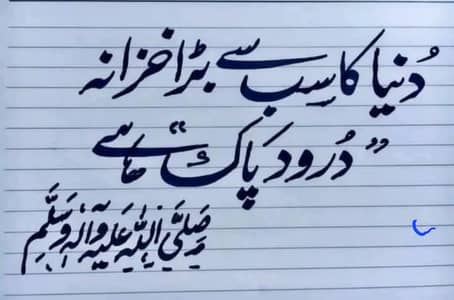 دُنیا کا سب سے بڑا خزانہ
”دُرود پَاک“ ہے
صَلَّی اللّٰہُ عَلَیْہِ وَآلِہٖ وَسَلَّم